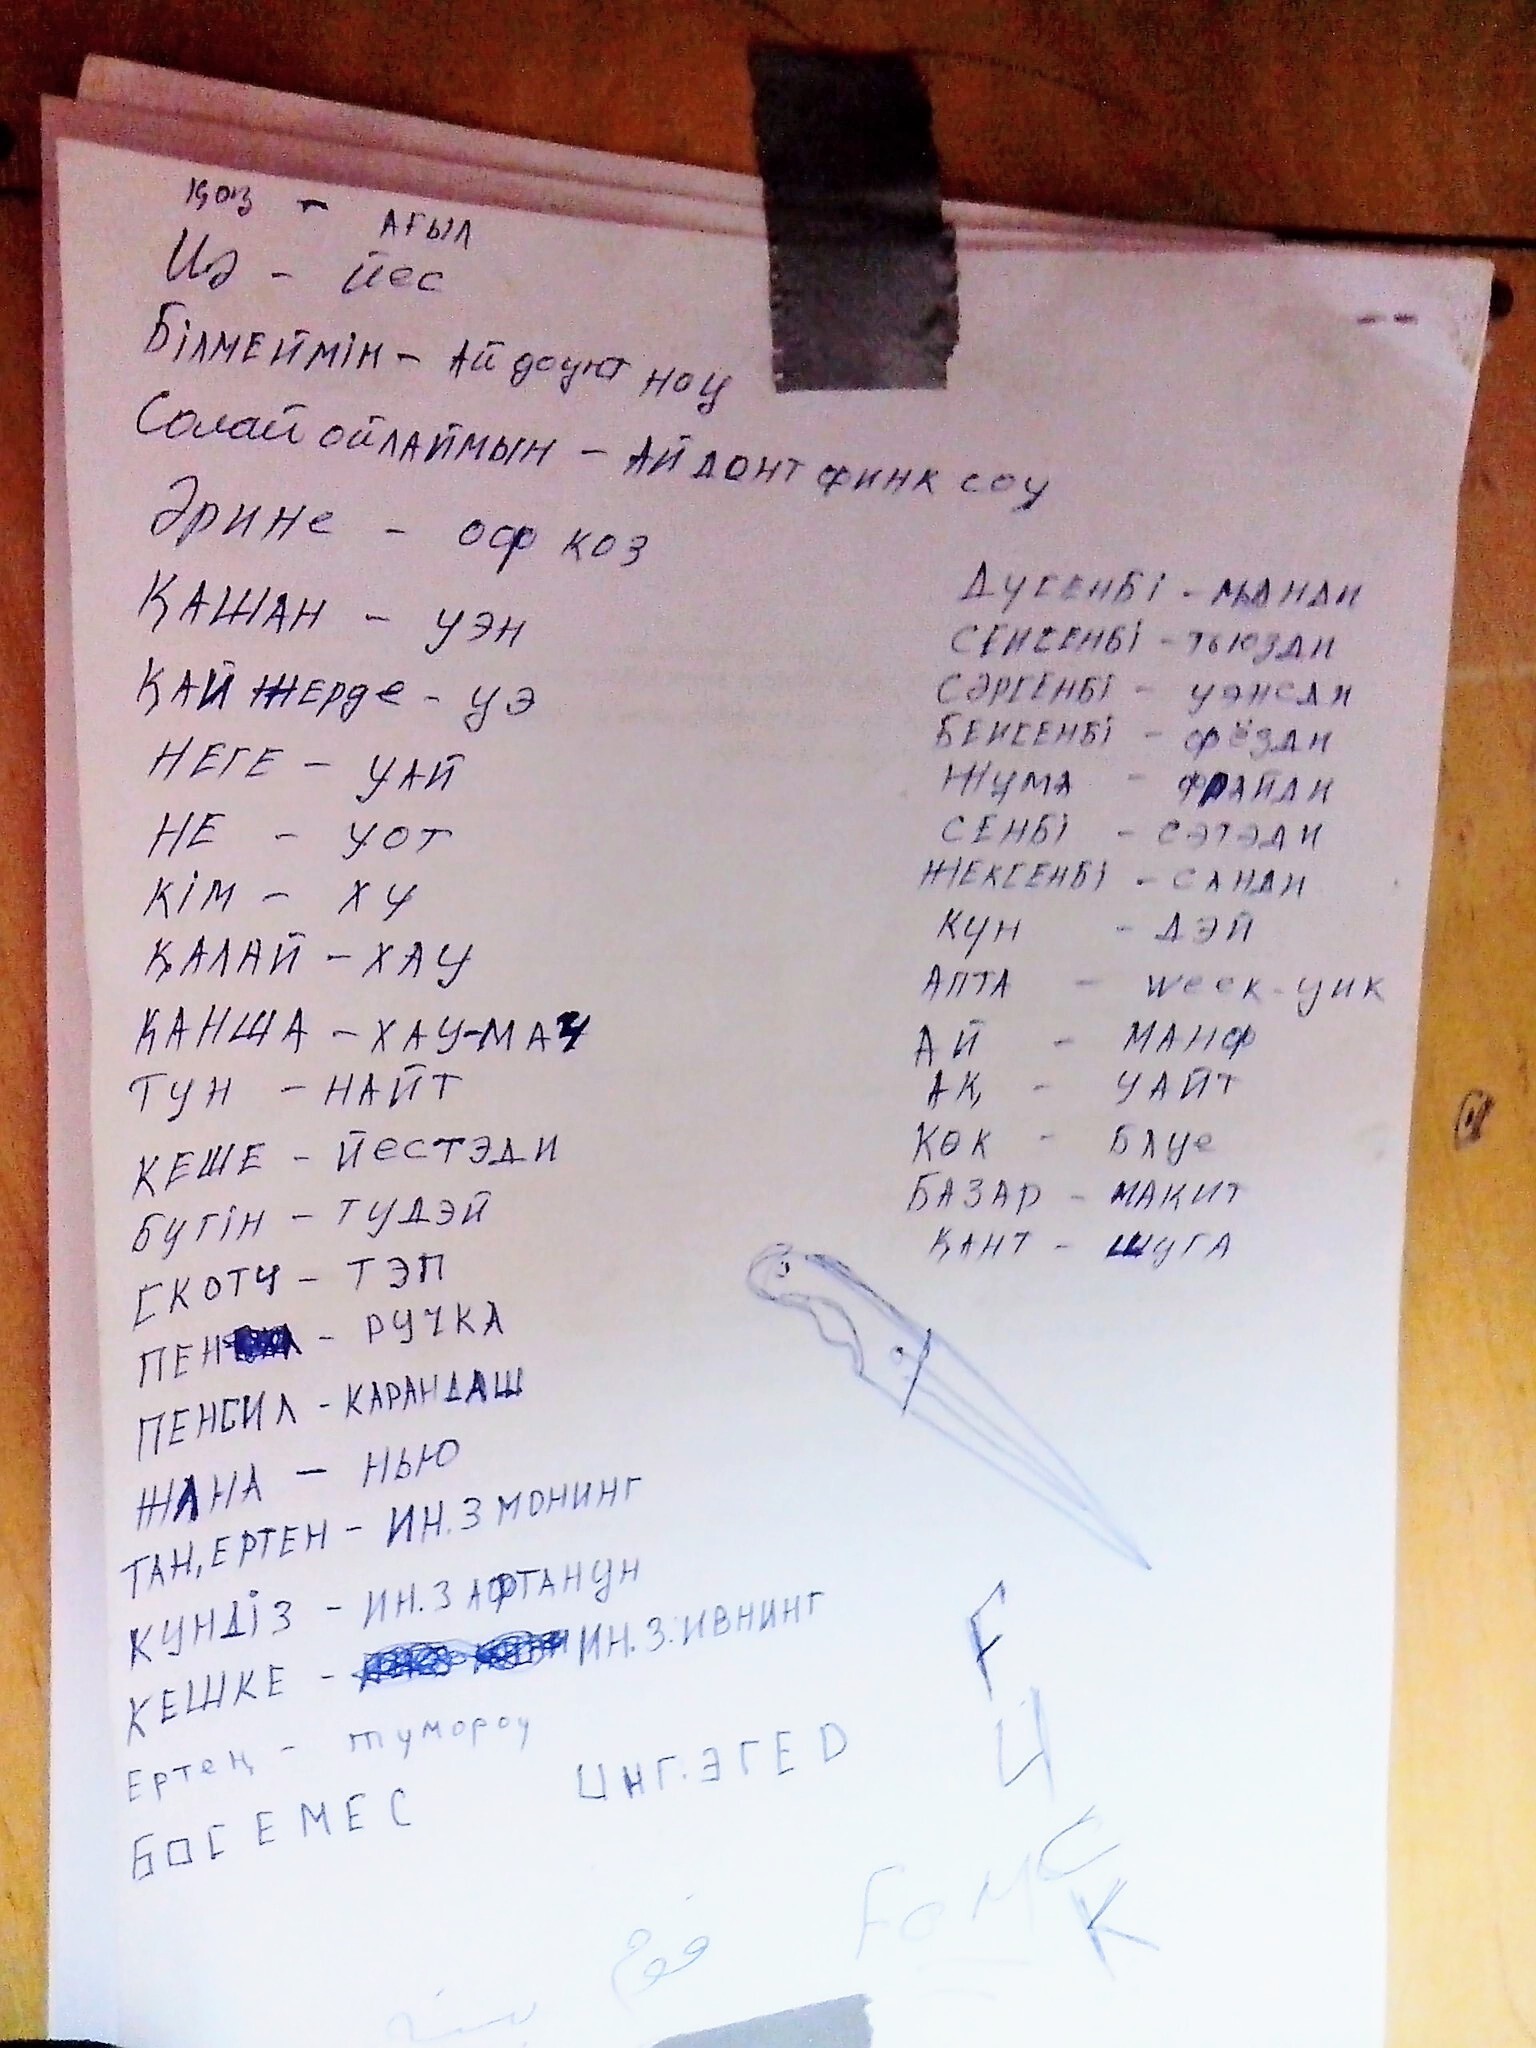 қаз - АҒЫЛ
Иә - йес
БІЛМЕЙМІН - АЙ доунт ноу
Солай ОЙЛАЙМЫН - АЙ ДОНТ ФИНК СОУ
Әрине - ОФ КОЗ
ҚАШАН - УЭН
ҚАЙ ЖЕРДЕ - УЭ
НЕГЕ - УАЙ
НЕ - УОТ
КІМ - ХУ
ҚАЛАЙ - ХАУ
ҚАНША - ХАУ-МАЧ
ТУН - НАЙТ
КЕШЕ - ЙЕСТЭДИ
БУГІН - ТУДЭЙ
СКОТЧ - ТЭП
ПЕН - РУЧКА
ПЕНСИЛ - КАРАНДАШ
ЖАНА - НЬЮ
ТАН, ЕРТЕН - ИН. З МОНИНГ
КУНДІЗ - ИН. З АФТАНУН
КЕШКЕ - ИН. З. ИВНИНГ
Ертең - тумороу
БОС ЕМЕС ИНГ.ЭГЕD
ДУСЕНБІ - МАНДИ
СЕИСЕНБІ - ТЬЮЗДИ
СӘРСЕНБІ - УЭНСДИ
БЕИСЕНБІ - ФЁЗДИ
ЖУМА - ФРАЙДИ
СЕНБІ - СЭТЭДИ
ЖЕКСЕНБІ - САНДИ
КУН - ДЭЙ
АПТА - week - УИК
АЙ - МАНФ
АҚ - УАЙТ
КӨК - БЛУЕ
БАЗАР - МАКИТ
ҚАНТ - ШУГА
F
U
C
K